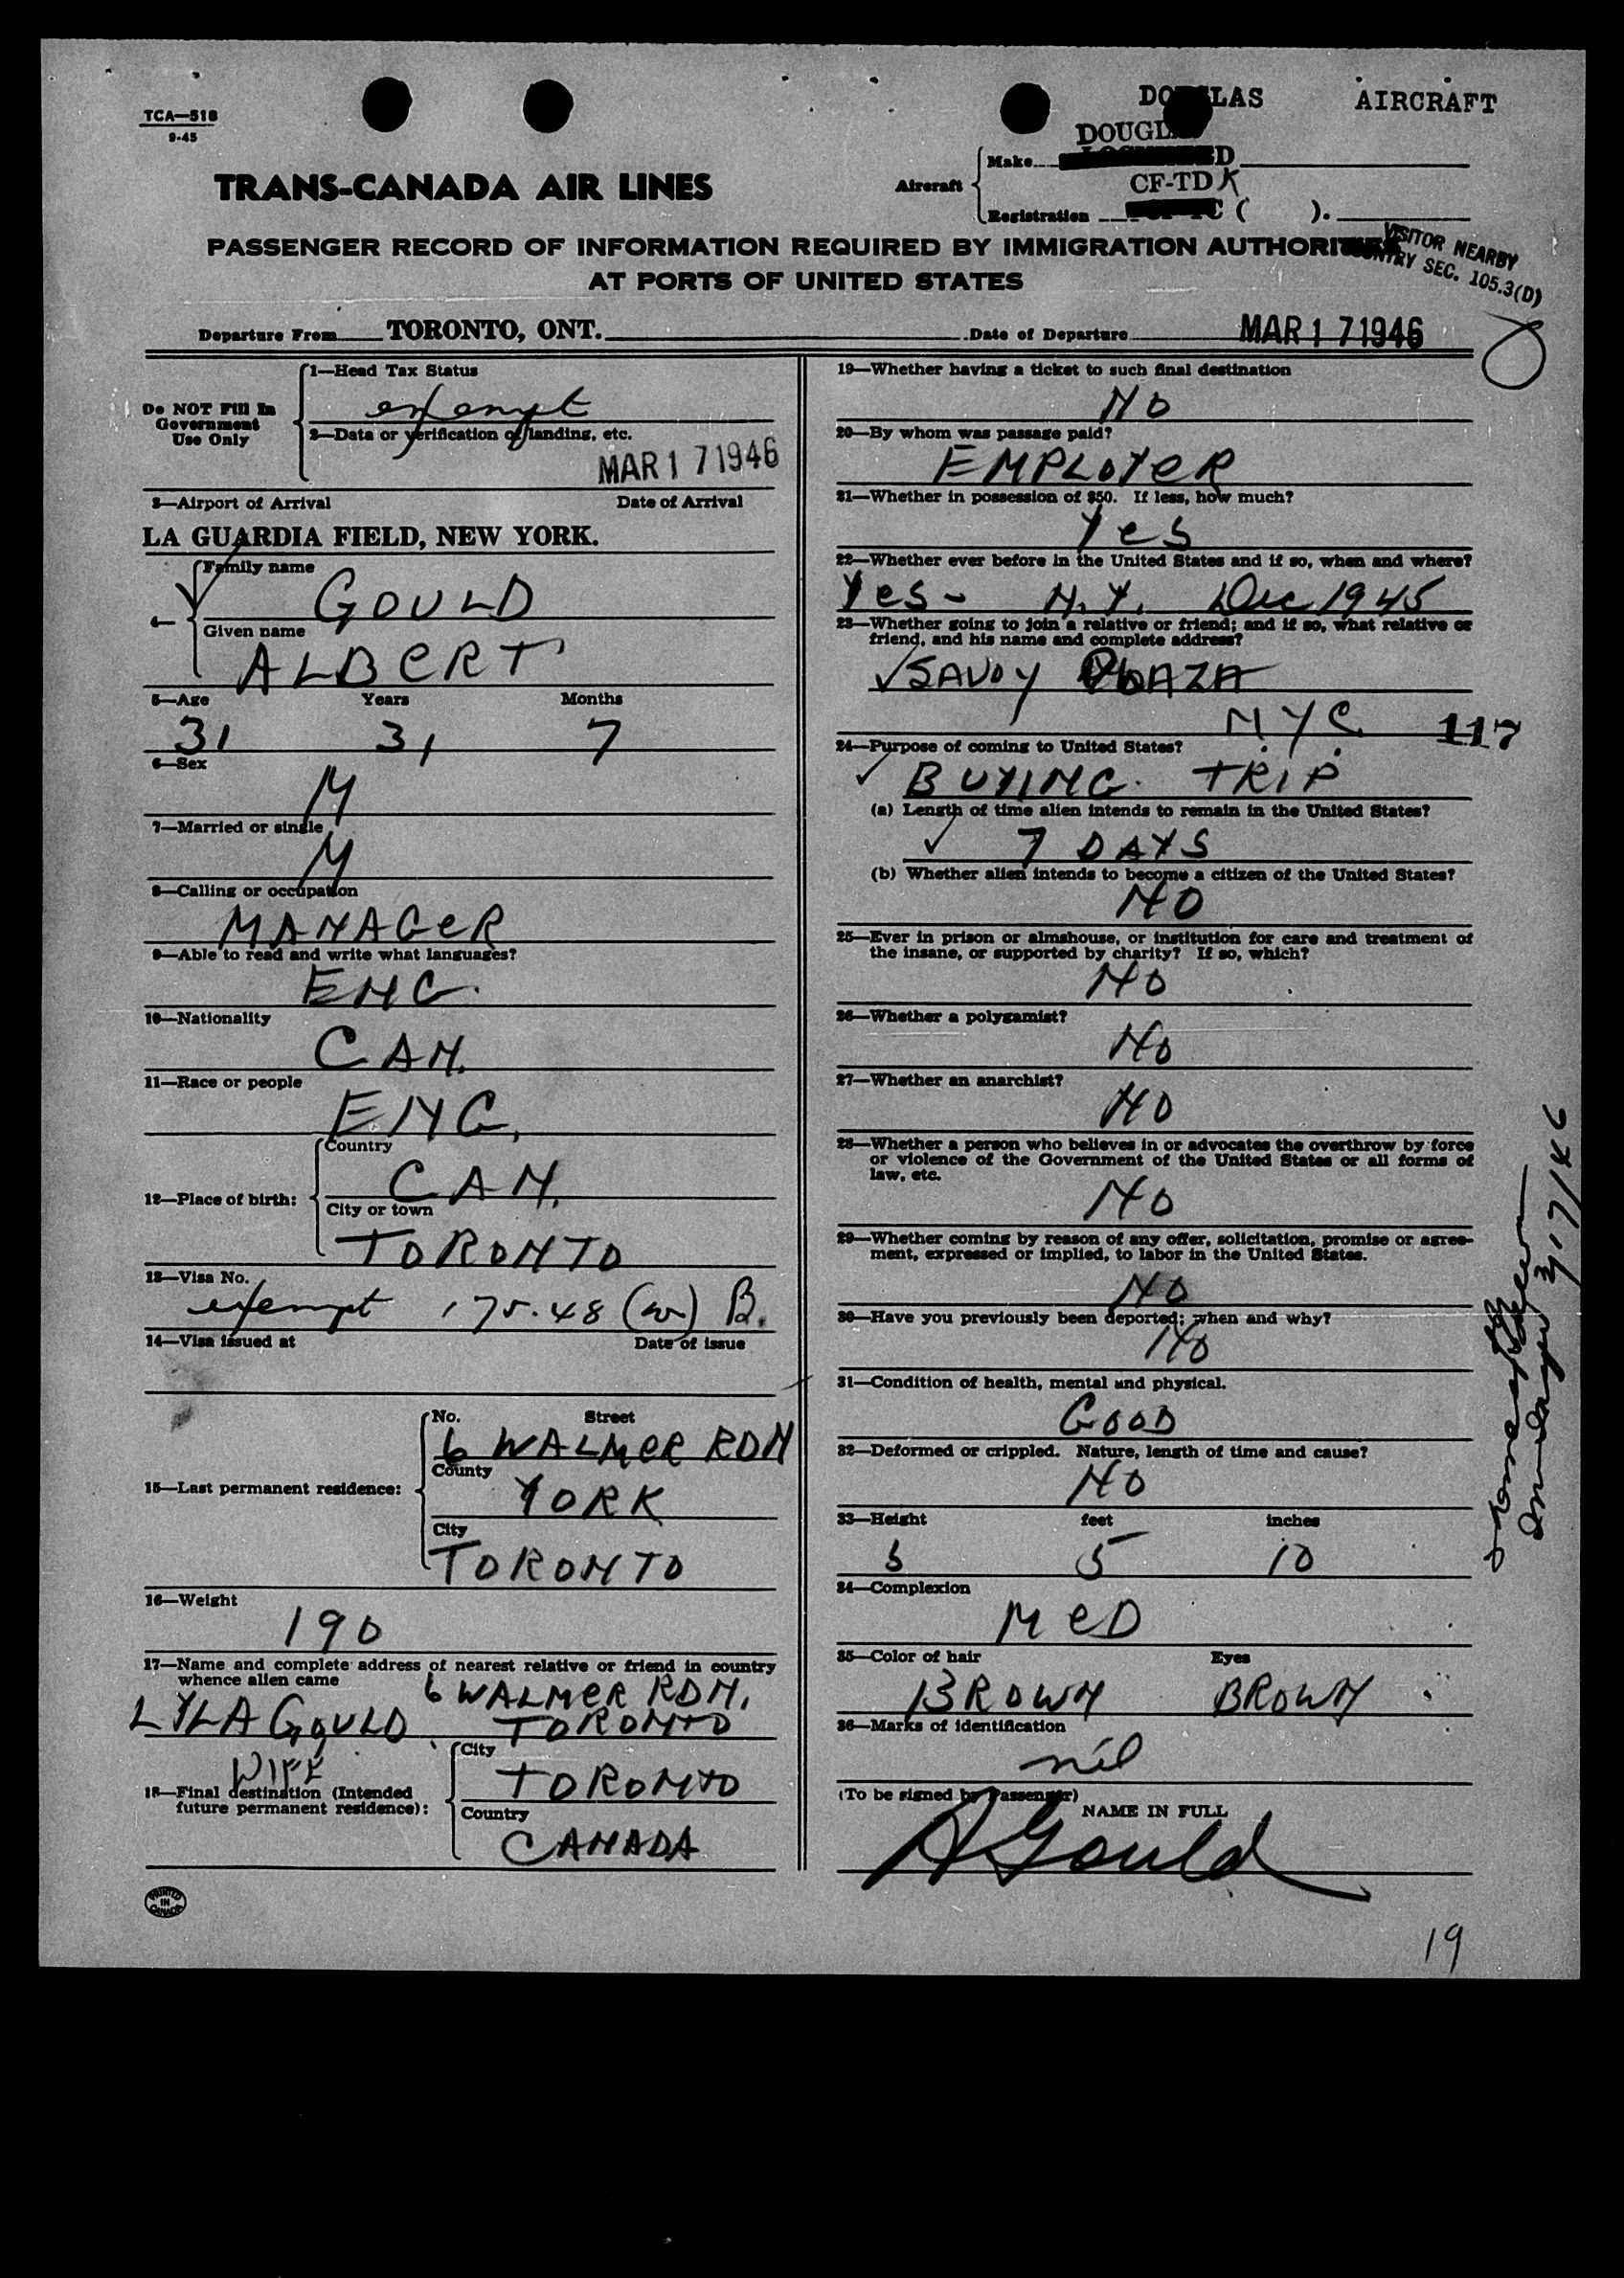 TCA—518
9-45
DOUGLAS AIRCRAFT
DOUGLAS
TRANS-CANADA AIR LINES
Aircraft
Make
CF-TDK
Registration ( ).
PASSENGER RECORD OF INFORMATION REQUIRED BY IMMIGRATION AUTHORITIES
AT PORTS OF UNITED STATES
VISITOR NEARBY
COUNTRY SEC. 105.3(D)
Departure From TORONTO, ONT. Date of Departure MAR 1 7 1946
Do NOT Fill In
Government
Use Only
1—Head Tax Status
exempt
2—Data or verification of landing, etc.
MAR 1 7 1946
3—Airport of Arrival Date of Arrival
LA GUARDIA FIELD, NEW YORK.
4—
Family name
GOULD
Given name
ALBERT
5—Age Years Months
31 31 7
6—Sex
M
7—Married or single
M
8—Calling or occupation
MANAGER
9—Able to read and write what languages?
ENG.
10—Nationality
CAN.
11—Race or people
ENG.
12—Place of birth:
Country
CAN.
City or town
TORONTO
13—Visa No.
exempt 175.48 (w) B.
14—Visa issued at Date of issue
15—Last permanent residence:
No. Street
6 WALMER RDN
County
YORK
City
TORONTO
16—Weight
190
17—Name and complete address of nearest relative or friend in country
whence alien came
6 WALMER RDN.
LYLA GOULD TORONTO
WIFE
18—Final destination (Intended
future permanent residence):
City
TORONTO
Country
CANADA
PRINTED
IN
CANADA
19—Whether having a ticket to such final destination
NO
20—By whom was passage paid?
EMPLOYER
21—Whether in possession of $50. If less, how much?
Yes
22—Whether ever before in the United States and if so, when and where?
Yes - N.Y. Dec 1945
23—Whether going to join a relative or friend; and if so, what relative or
friend, and his name and complete address?
SAVOY PLAZA
NYC. 117
24—Purpose of coming to United States?
BUYING TRIP
(a) Length of time alien intends to remain in the United States?
7 DAYS
(b) Whether alien intends to become a citizen of the United States?
NO
25—Ever in prison or almshouse, or institution for care and treatment of
the insane, or supported by charity? If so, which?
NO
26—Whether a polygamist?
NO
27—Whether an anarchist?
NO
28—Whether a person who believes in or advocates the overthrow by force
or violence of the Government of the United States or all forms of
law, etc.
NO
29—Whether coming by reason of any offer, solicitation, promise or agree-
ment, expressed or implied, to labor in the United States.
NO
30—Have you previously been deported; when and why?
NO
31—Condition of health, mental and physical.
GOOD
32—Deformed or crippled. Nature, length of time and cause?
NO
33—Height feet inches
5 10
34—Complexion
MED
35—Color of hair Eyes
BROWN BROWN
36—Marks of identification
nil
(To be signed by Passenger)
NAME IN FULL
A Gould
3/17/46
19